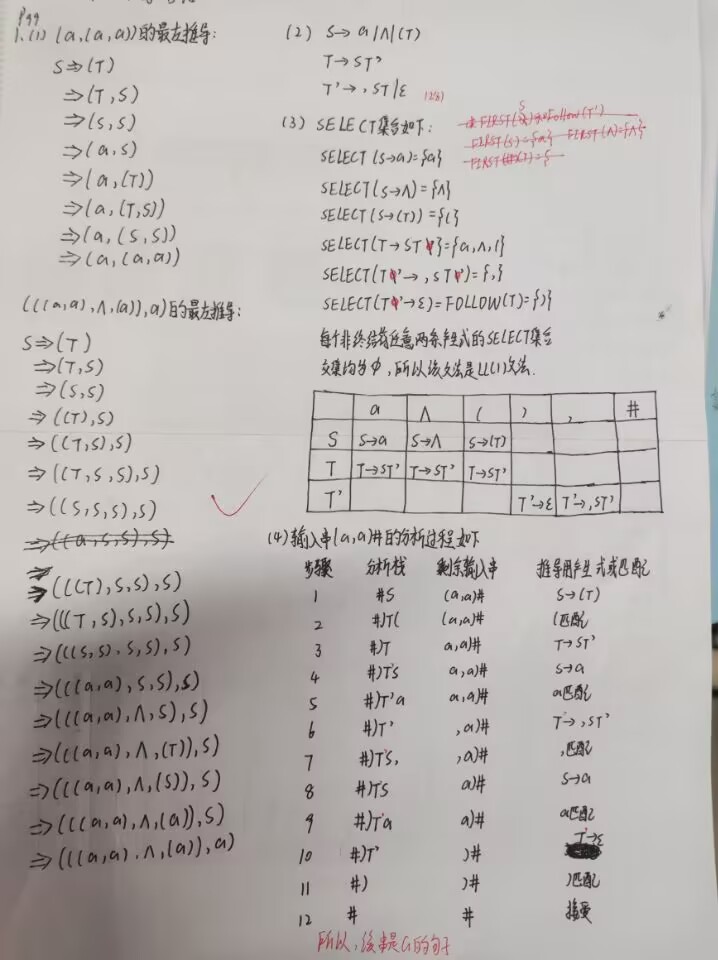 P99
1.(1) (a,(a,a))的最左推导:
S⇒(T)
⇒(T,S)
⇒(S,S)
⇒(a,S)
⇒(a,(T))
⇒(a,(T,S))
⇒(a,(S,S))
⇒(a,(a,a))
(((a,a),Λ,(a)),a)的最左推导:
S⇒(T)
⇒(T,S)
⇒(S,S)
⇒((T),S)
⇒((T,S),S)
⇒((T,S,S),S)
⇒((S,S,S),S)
⇒((a,S,S),S)
⇒(((T),S,S),S)
⇒(((T,S),S,S),S)
⇒(((S,S),S,S),S)
⇒(((a,a),S,S),S)
⇒(((a,a),Λ,S),S)
⇒(((a,a),Λ,(T)),S)
⇒(((a,a),Λ,(S)),S)
⇒(((a,a),Λ,(a)),S)
⇒(((a,a),Λ,(a)),a)
(2) S→a|Λ|(T)
T→ST'
T'→,ST'|ε
(3) SELECT集合如下:
SELECT(S→a)={a}
SELECT(S→Λ)={Λ}
SELECT(S→(T))={(}
SELECT(T→ST')={a,Λ,(}
SELECT(T'→,ST')={,}
SELECT(T'→ε)=FOLLOW(T)={)}
每个非终结符任意两条产生式的SELECT集合
交集均为φ,所以该文法是LL(1)文法.
a Λ ( ) , #
S S→a S→Λ S→(T)
T T→ST' T→ST' T→ST'
T' T'→ε T'→,ST'
(4)输入串(a,a)#的分析过程如下
步骤 分析栈 剩余输入串 推导用产生式或匹配
1 #S (a,a)# S→(T)
2 #)T( (a,a)# (匹配
3 #)T a,a)# T→ST'
4 #)T'S a,a)# S→a
5 #)T'a a,a)# a匹配
6 #)T' ,a)# T'→,ST'
7 #)T'S, ,a)# ,匹配
8 #)T'S a)# S→a
9 #)T'a a)# a匹配
10 #)T' )# T'→ε
11 #) )# )匹配
12 # # 接受
所以,该串是G的句子